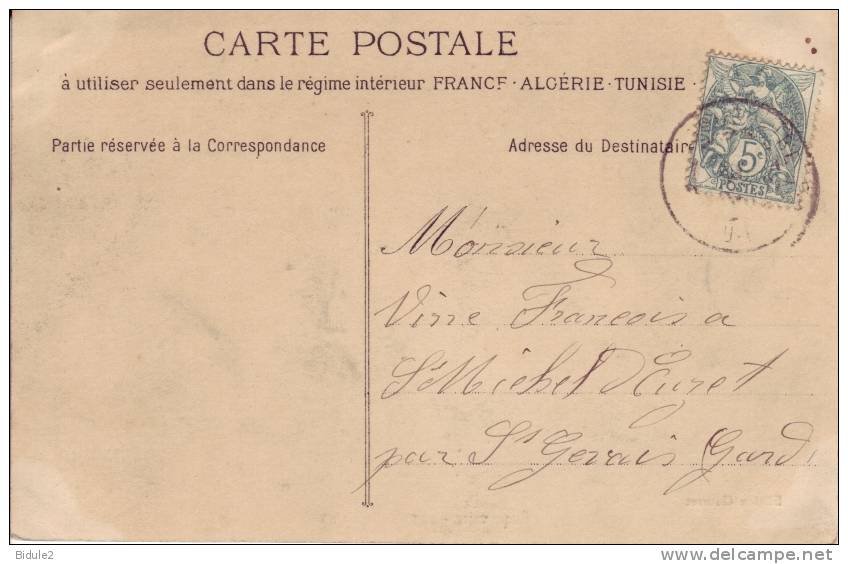 CARTE POSTALE
à utiliser seulement dans le régime intérieur FRANCE · ALGÉRIE · TUNISIE ·
Partie réservée à la Correspondance
Adresse du Destinataire
5c
POSTES
Monsieur
Vire Francois a
St Michel d'Euzet
par St Gervais Gard
Bidule2
www.delcampe.net